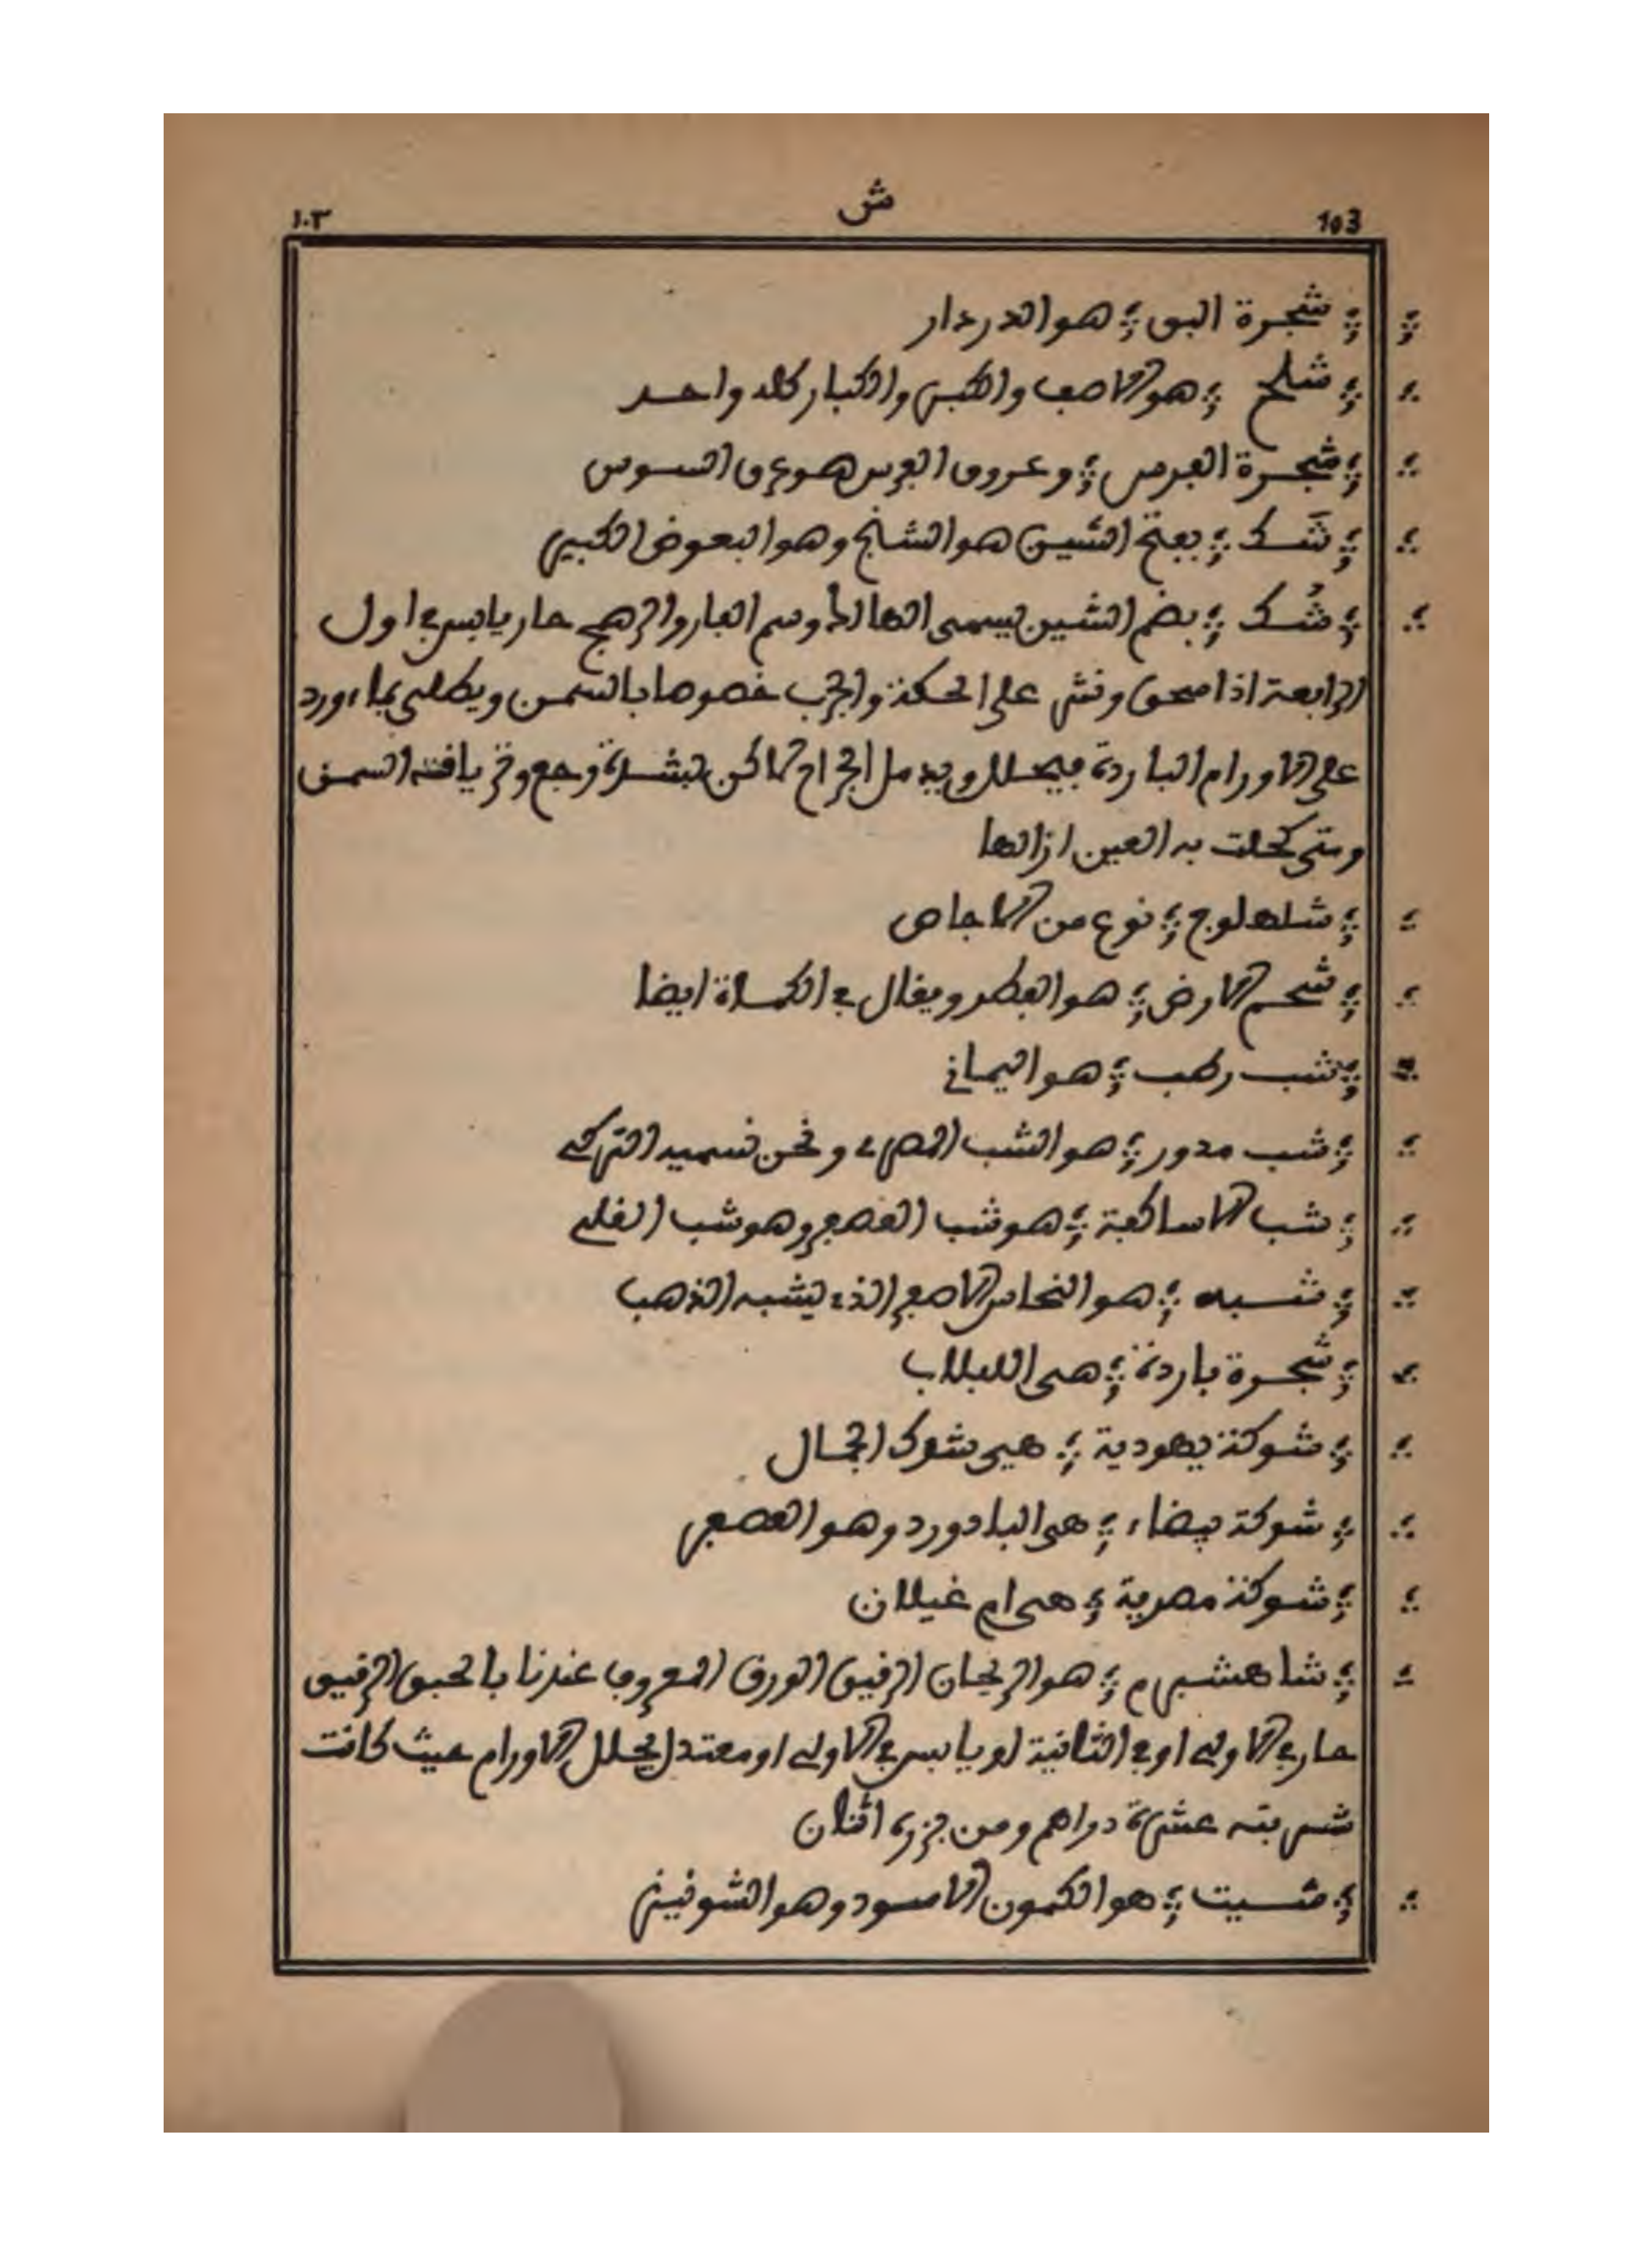 103 ش ١٠٣
؛ شجرة البق ؛ هو الدردار
؛ شلح ؛ هو الاصف والكبر والكبار كله واحد
؛ شجرة الفرس ؛ وعروق الفرس هو عرق السوس
؛ شَك ؛ بفتح الشين هو الشنج وهو البعوض الكبير
؛ شُك ؛ بضم الشين يسمى الهالك وسم الفار والرهج حار يابس في اول
الرابعة اذا سحق ونثر على الحكة والجرب خصوصا بالسمن ويطلى بماء ورد
على الاورام الباردة فيحلل ويدمل الجراح لاكن بشدة وجع وترياقه السمن
ومتى كحلت به العين ازالها
؛ شاهلوج ؛ نوع من الاجاص
؛ شحم الارض ؛ هو الفطر ويقال في الكماة ايضا
؛ شب رطب ؛ هو اليماني
؛ شب مدور ؛ هو الشب المصري ونحن نسميه التركي
؛ شب الاساكفة ؛ هو شب العصفر وهو شب القلي
؛ شبه ؛ هو النحاس الاصفر الذي يشبه الذهب
؛ شجرة باردة ؛ هى اللبلاب
؛ شوكة يهودية ؛ هي شوك الجمال
؛ شوكة بيضاء ؛ هى الباداورد وهو العصفر
؛ شوكة مصرية ؛ هى ام غيلان
؛ شاهشبرم ؛ هو الريحان الرقيق الورق المعروف عندنا بالحبق الرقيق
حار في الاولى او في الثانية او يابس في الاولى او معتدل يحلل الاورام حيث كانت
شربته عشرة دراهم ومن بزره اثنان
؛ شيت ؛ هو الكمون الاسود وهو الشونيز